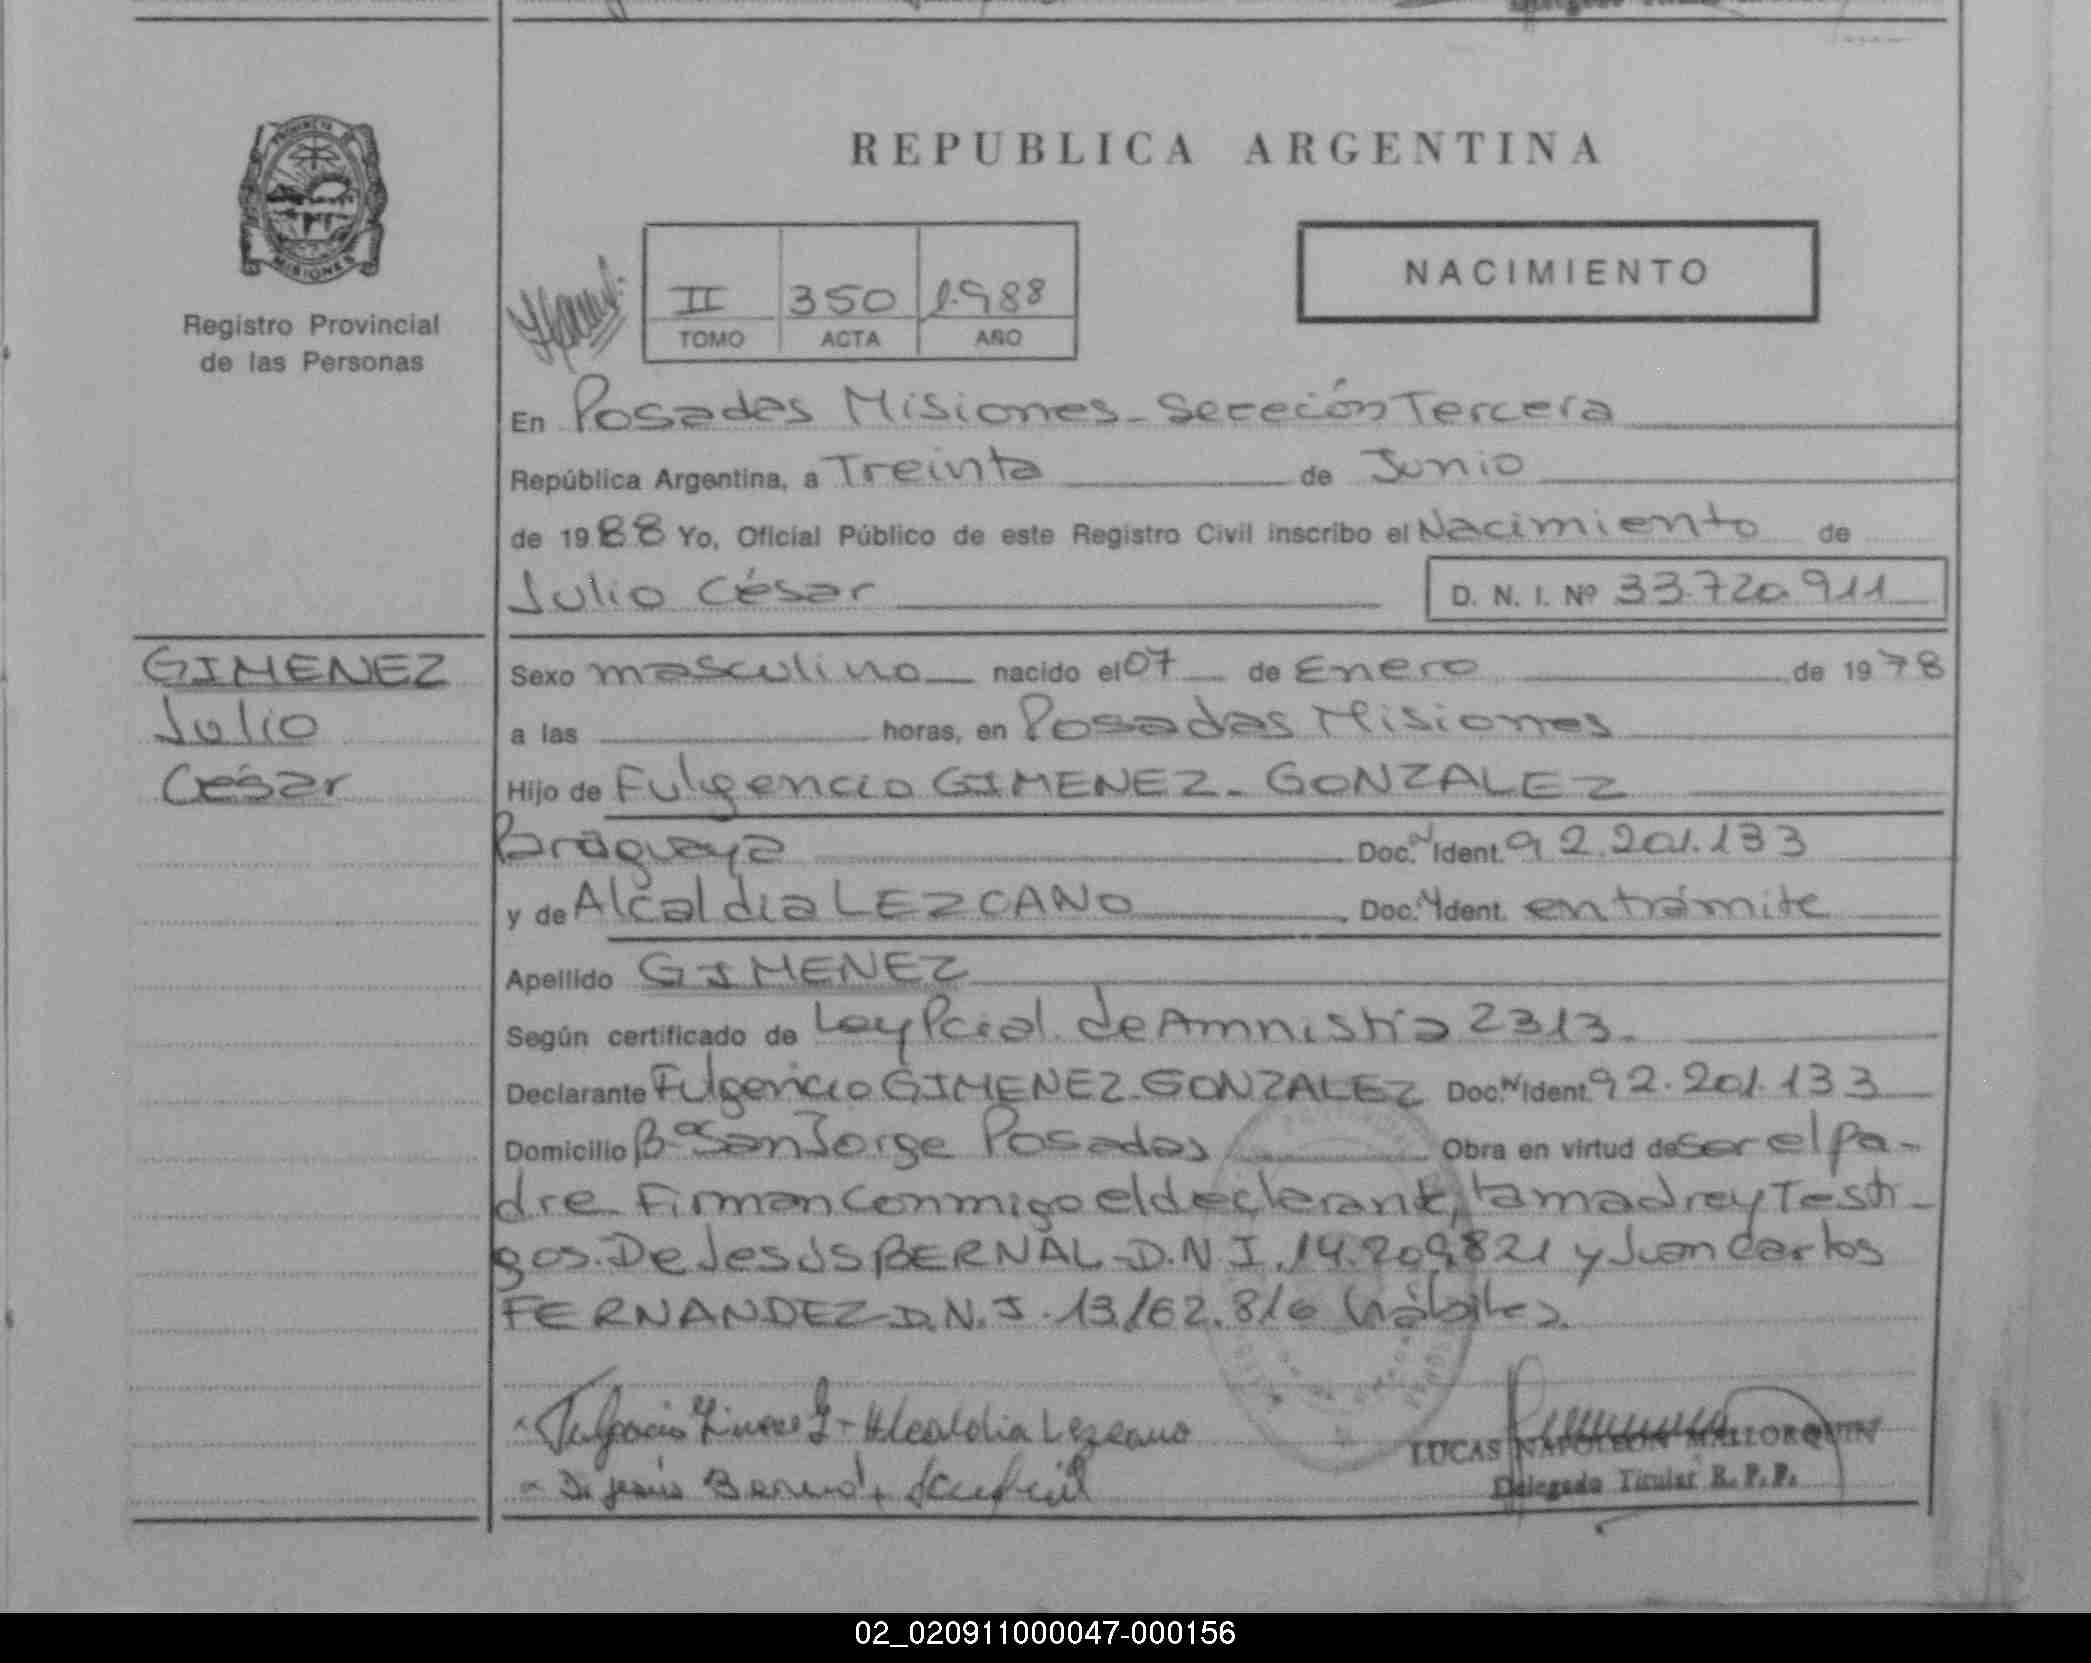 PROVINCIA DE
MISIONES
Registro Provincial
de las Personas
REPUBLICA ARGENTINA
II 350 1.988
TOMO ACTA AÑO
NACIMIENTO
En Posadas Misiones - Sección Tercera
República Argentina, a Treinta de Junio
de 1988 Yo, Oficial Público de este Registro Civil inscribo el Nacimiento de
Julio César D. N. I. Nº 33.720.911
GIMENEZ
Julio
César
Sexo masculino nacido el 07 de Enero de 1978
a las horas, en Posadas Misiones
Hijo de Fulgencio GIMENEZ - GONZALEZ
Paraguaya Doc. Ident. 92.201.133
y de Alcaldia LEZCANO Doc. Ident. en trámite
Apellido GIMENEZ
Según certificado de Ley Pcial. de Amnistía 2313.
Declarante Fulgencio GIMENEZ - GONZALEZ Doc. Ident. 92.201.133
Domicilio Bº San Jorge Posadas Obra en virtud de ser el pa-
dre Firman conmigo el declarante, la madre y Testi-
gos. De Jesús BERNAL - D.N.I. 14.209.821 y Juan Carlos
FERNANDEZ D.N.I. 13.162.816 hábiles.
Alcaldia Lezcano
LUCAS NAPOLEON MALLORQUIN
Delegado Titular R. P. P.
02_020911000047-000156